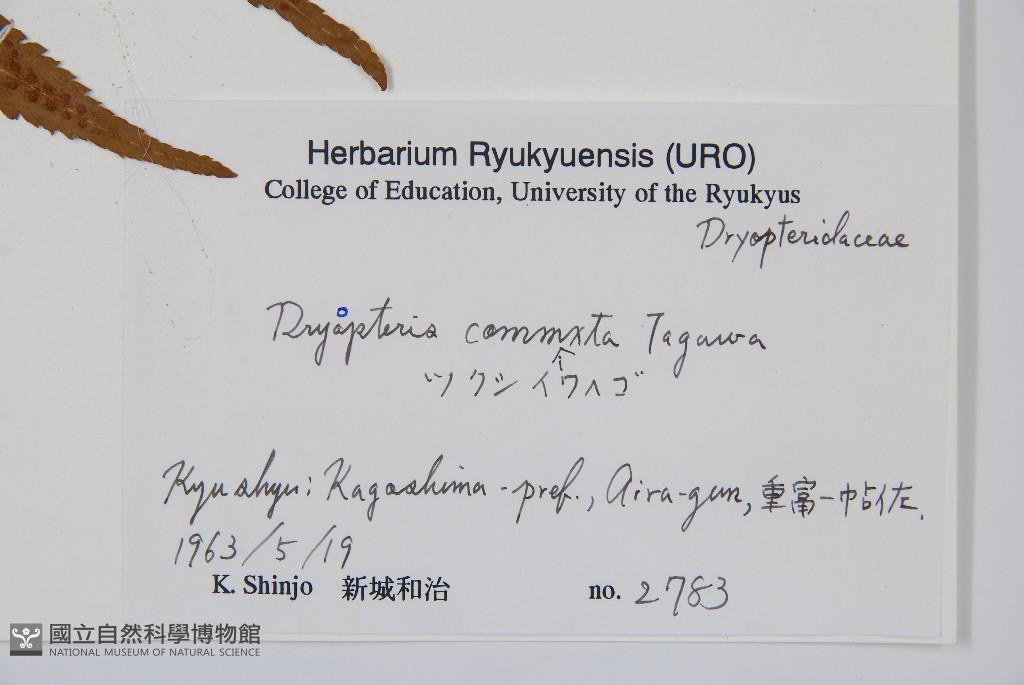 Herbarium Ryukyuensis (URO)
College of Education, University of the Ryukyus
Dryopteridaceae
Dryopteris commixta Tagawa
ツクシイワヘゴ
Kyushyu: Kagoshima-pref., Aira-gun, 重富一帖佐.
1963/5/19
K. Shinjo 新城和治 no. 2783
國立自然科學博物館
NATIONAL MUSEUM OF NATURAL SCIENCE